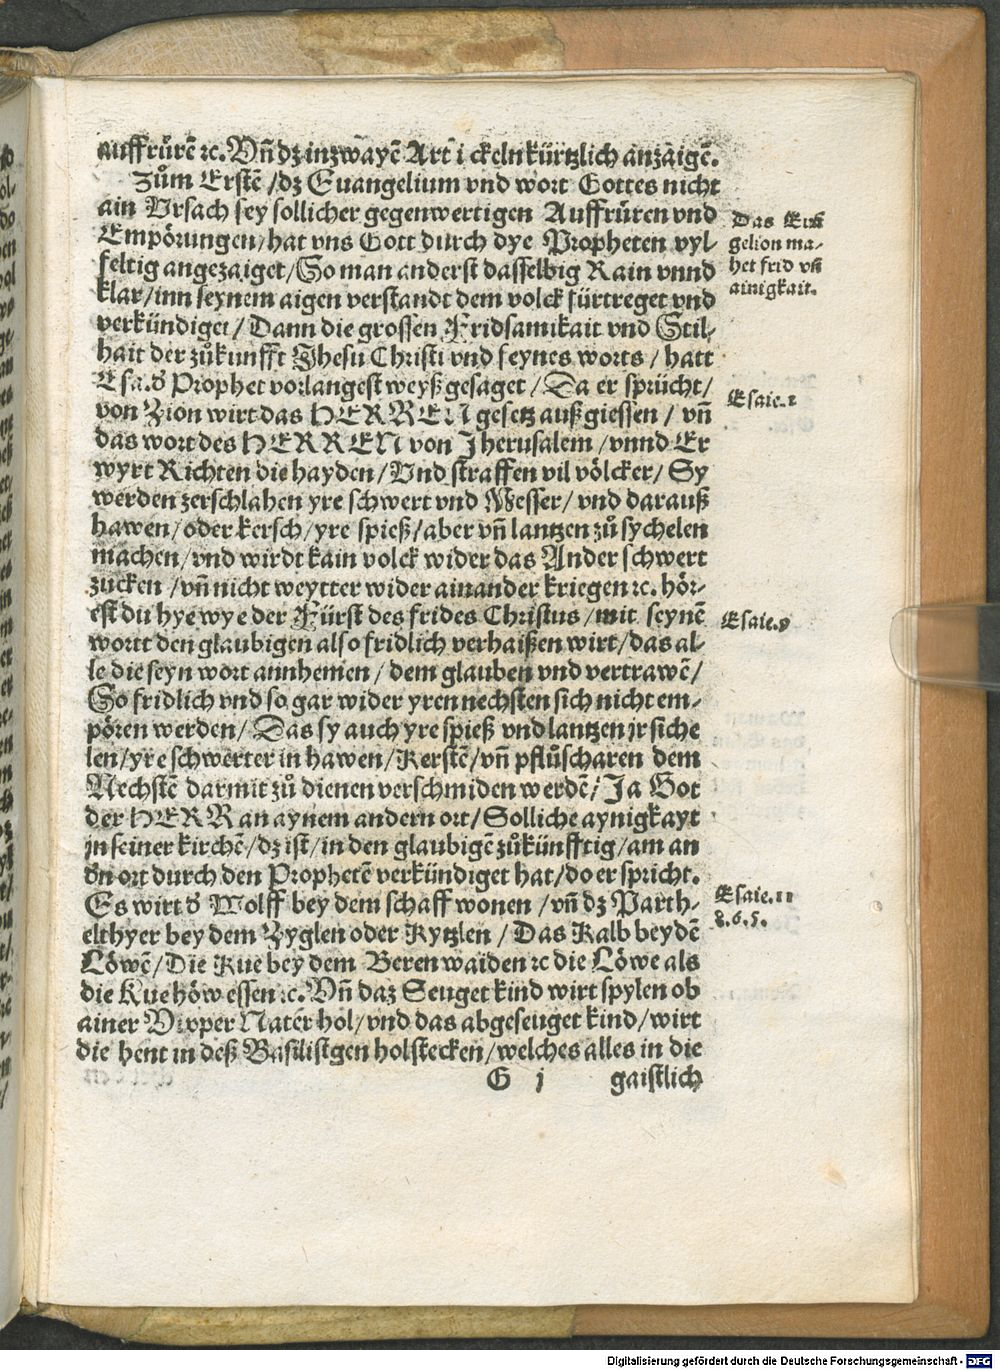 auffrůrē ꝛc. Vñ dz in zwayē Arti ckeln kürtzlich anzaigē.
Zům Erstē / dz Euangelium vnd wort Gottes nicht
ain Vrsach sey sollicher gegenwertigen Auffrůren vnd
Empörungen / hat vns Gott durch dye Propheten vyl-
feltig angezaiget / So man anderst dasselbig Rain vnnd
klar / inn seynem aigen verstandt dem volck fürtreget vnd
verkündiget / Dann die grossen Fridsamikait vnd Stil-
hait der zůkunfft Jhesu Christi vnd seynes worts / hatt
Esa. d̕ Prophet vorlangest weyß gesaget / Da er sprücht /
von Zion wirt das HERREN gesetz außgiessen / vñ
das wort des HERREN von Jherusalem / vnnd Er
wyrt Richten die hayden / Vnd straffen vil völcker / Sy
werden zerschlahen yre schwert vnd Messer / vnd darauß
hawen / oder kersch / yre spieß / aber vñ lantzen zů sychelen
machen / vnd wirdt kain volck wider das Ander schwert
zucken / vñ nicht weytter wider ainander kriegen ꝛc. hör-
est du hye wye der Fürst des frides Christus / mit seynē
wortt den glaubigen also fridlich verhaißen wirt / das al-
le die seyn wort annhemen / dem glauben vnd vertrawē /
So fridlich vnd so gar wider yren nechsten sich nicht em-
pören werden / Das sy auch yre spieß vnd lantzen jr siche
len / yre schwerter in hawen / Kerstē / vñ pflůscharen dem
Nechstē darmit zů dienen verschmiden werdē / Ja Got
der HERR an aynem andern ort / Solliche aynigkayt
jn seiner kirchē / dz ist / in den glaubigē zůkünfftig / am an
d̕n ort durch den Prophetē verkündiget hat / do er spricht.
Es wirt d̕ Wolff bey dem schaff wonen / vñ dz Parth-
elthyer bey dem Zyglen oder Kytzlen / Das Kalb bey dē
Löwē / Die Kue bey dem Beren waiden ꝛc die Löwe als
die Kue höw essen ꝛc. Vñ daz Seuget kind wirt spylen ob
ainer Vipper Nater hol / vnd das abgeseuget kind / wirt
die hent in deß Basilistgen hol stecken / welches alles in die
G j gaistlich
Das Euā
gelion ma-
het frid vñ
ainigkait.
Esaie. 2
Esaie. 9
Esaie. 11
8. 6. 5.
Digitalisierung gefördert durch die Deutsche Forschungsgemeinschaft - DFG